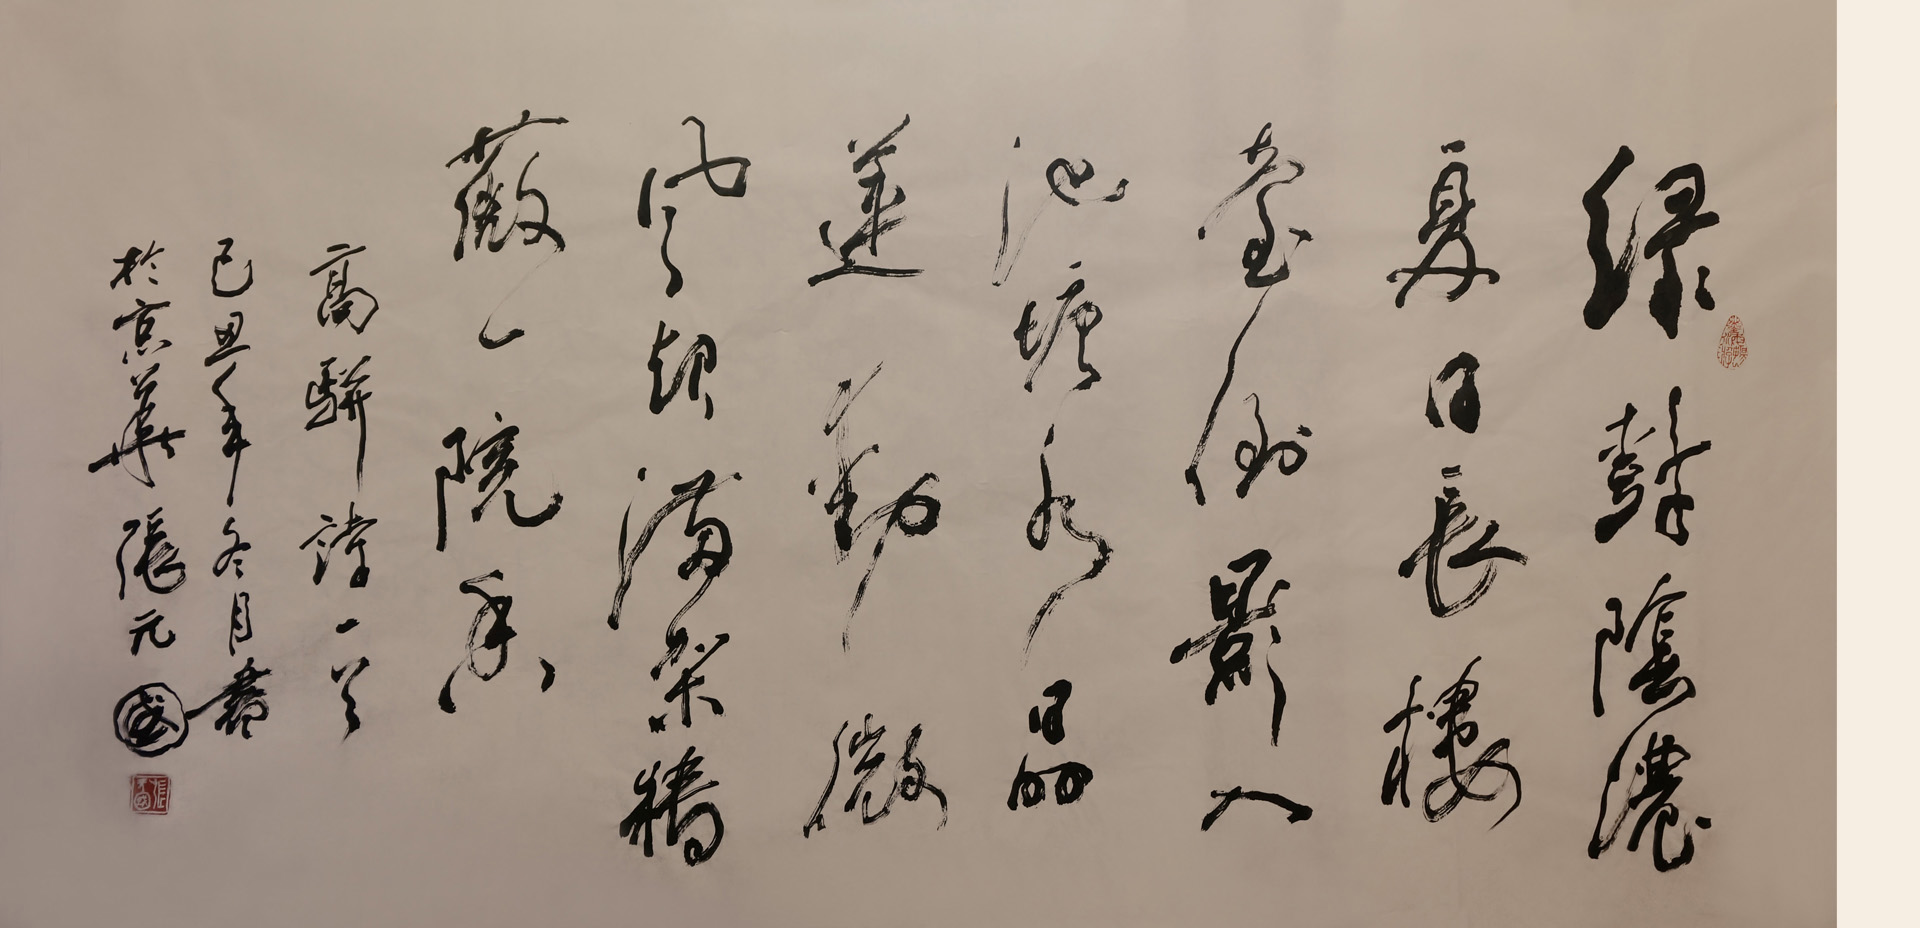 绿樹陰濃
夏日長樓
臺倒影入
池塘水晶
蓮動微
风起满架牆
薇一院香
高駢詩一首
己丑年冬月書
於京華張元國